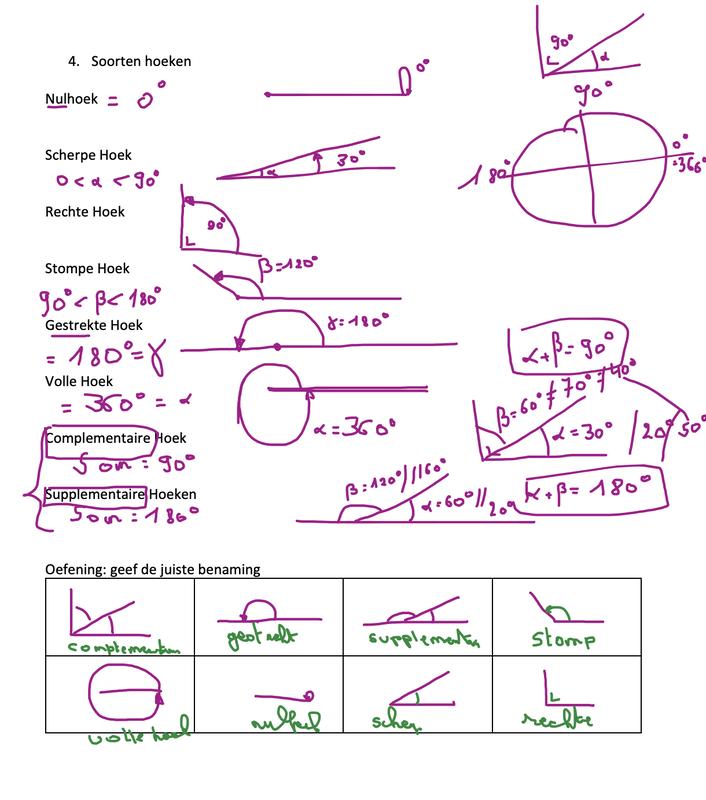 4. Soorten hoeken
90°
α
0°
Nulhoek = 0°
90°
180°
0°
=360°
Scherpe Hoek
30°
α
0<α<90°
Rechte Hoek
90°
Stompe Hoek
β=120°
90°<β<180°
Gestrekte Hoek
γ=180°
= 180°=γ
α+β=90°
Volle Hoek
= 360° = α
α=360°
β=60°/70°/40°
α=30°
/20°/50°
Complementaire Hoek
Som = 90°
Supplementaire Hoeken
Som = 180°
β=120°//160°
α=60°//20°
α+β=180°
Oefening: geef de juiste benaming
complementair
gestrekt
supplementair
Stomp
volle hoek
scherp
rechte